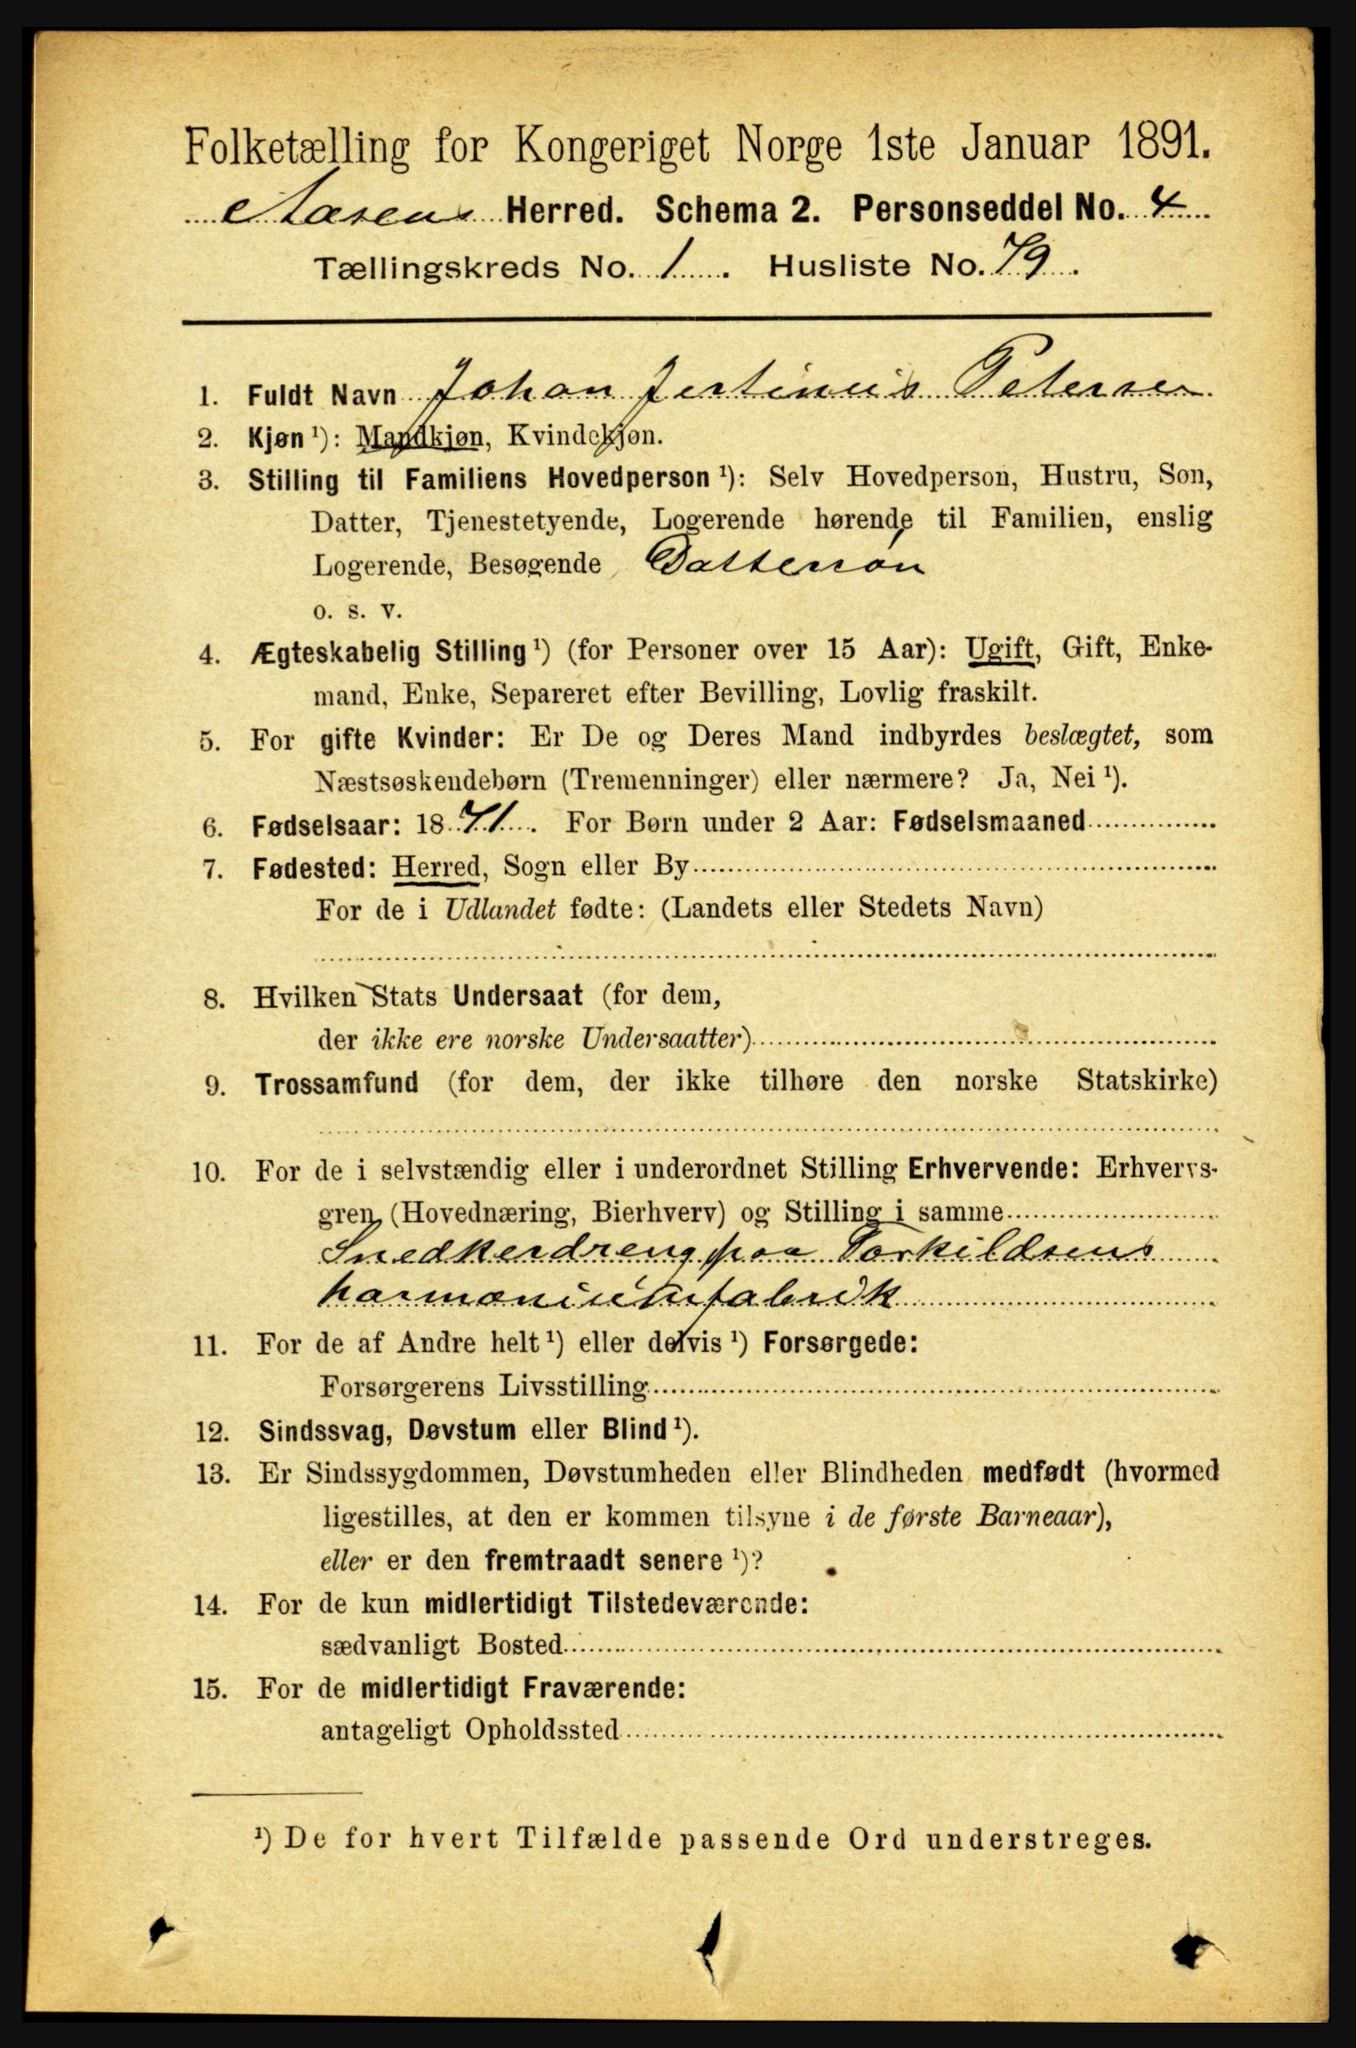 Folketælling for Kongeriget Norge 1ste Januar 1891.
Aasens Herred. Schema 2. Personseddel No. 4
Tællingskreds No. 1. Husliste No. 79.
1. Fuldt Navn Johan Jertinius Petersen
2. Kjøn ¹): Mandkjøn, Kvindekjøn.
3. Stilling til Familiens Hovedperson ¹): Selv Hovedperson, Hustru, Son,
Datter, Tjenestetyende, Logerende hørende til Familien, enslig
Logerende, Besøgende Datterson
o. s. v.
4. Ægteskabelig Stilling ¹) (for Personer over 15 Aar): Ugift, Gift, Enke-
mand, Enke, Separeret efter Bevilling, Lovlig fraskilt.
5. For gifte Kvinder: Er De og Deres Mand indbyrdes beslægtet, som
Næstsøskendebørn (Tremenninger) eller nærmere? Ja, Nei ¹).
6. Fødselsaar: 1871. For Børn under 2 Aar: Fødselsmaaned
7. Fødested: Herred, Sogn eller By
For de i Udlandet fødte: (Landets eller Stedets Navn)
8. Hvilken Stats Undersaat (for dem,
der ikke ere norske Undersaatter)
9. Trossamfund (for dem, der ikke tilhøre den norske Statskirke)
10. For de i selvstændig eller i underordnet Stilling Erhvervende: Erhvervs-
gren (Hovednæring, Bierhverv) og Stilling i samme
Snedkerdreng paa Torkildsens
harmoniumfabrik
11. For de af Andre helt ¹) eller delvis ¹) Forsørgede:
Forsørgerens Livsstilling
12. Sindssvag, Døvstum eller Blind ¹).
13. Er Sindssygdommen, Døvstumheden eller Blindheden medfødt (hvormed
ligestilles, at den er kommen tilsyne i de første Barneaar),
eller er den fremtraadt senere ¹)?
14. For de kun midlertidigt Tilstedeværende:
sædvanligt Bosted
15. For de midlertidigt Fraværende:
antageligt Opholdssted
¹) De for hvert Tilfælde passende Ord understreges.